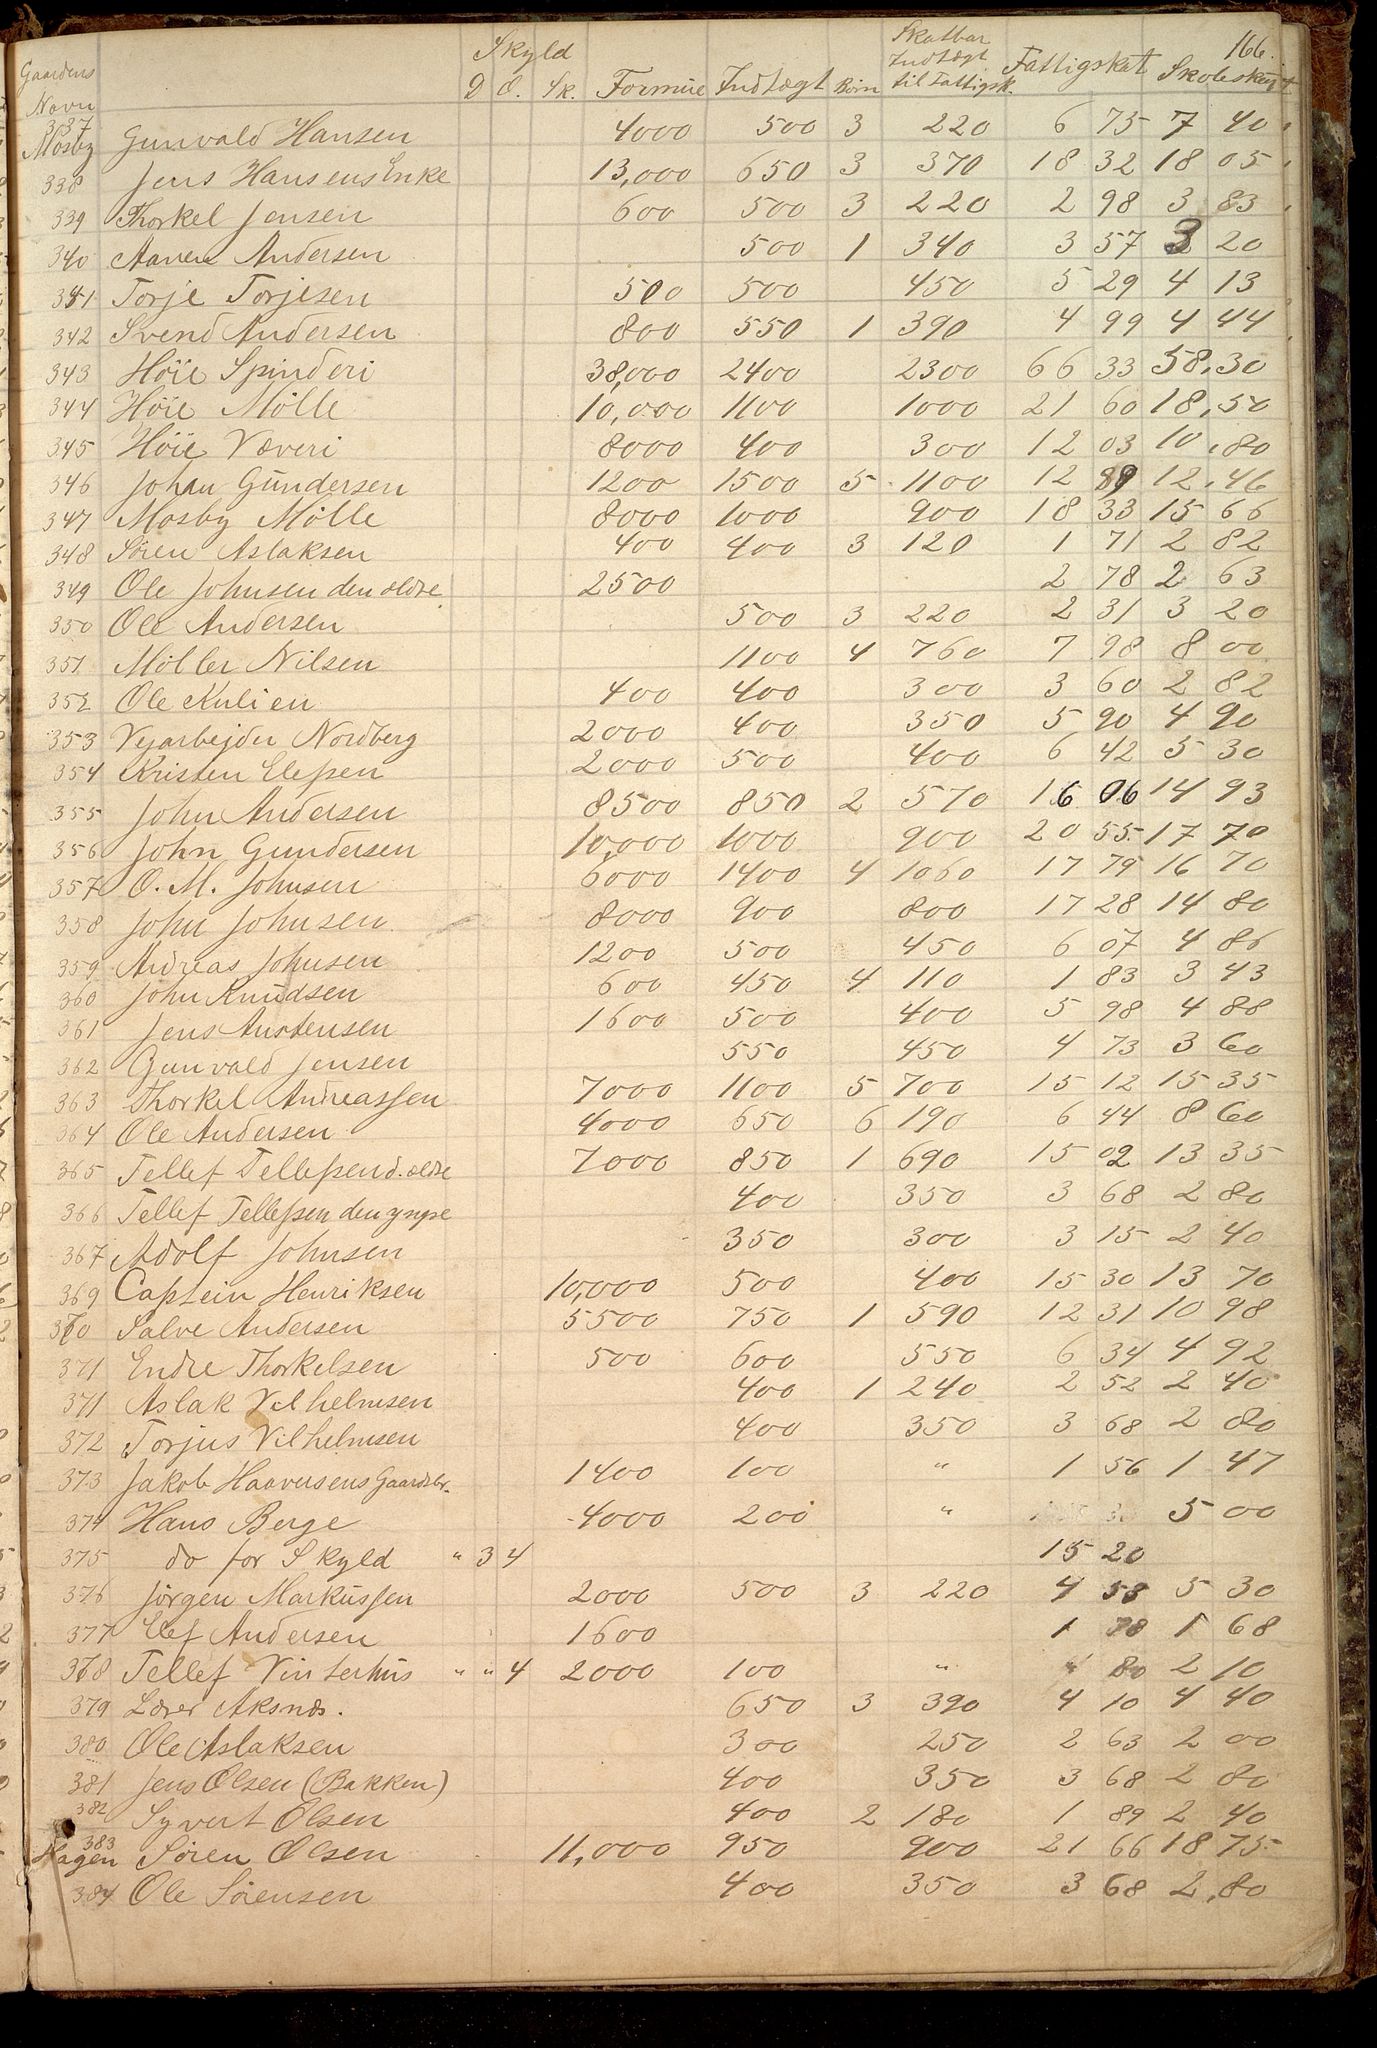 166.
Gaardens Navn Skyld D. O. Sk. Formue Indtægt Börn Skatbar Indtægt til Fattigsk. Fattigskat Skoleskat
337 Mosby Gunvald Hansen 4000 500 3 220 6 75 7 40
338 Jens Hansens Enke 13,000 650 3 370 18 32 18 05
339 Thorkel Jensen 600 500 3 220 2 98 3 83
340 Aanen Andersen 500 1 340 3 57 3 20
341 Torje Torjesen 500 500 450 5 29 4 13
342 Svend Andersen 800 550 1 390 4 99 4 44
343 Höie Spinderi 38,000 2400 2300 66 33 58,30
344 Höie Mölle 10,000 1100 1000 21 60 18,50
345 Höie Væveri 8000 400 300 12 03 10,80
346 Johan Gundersen 1200 1500 5 1100 12 89 12,46
347 Mosby Mölle 8000 1000 900 18 33 15 66
348 Sören Aslaksen 400 400 3 120 1 71 2 82
349 Ole Johnsen den ældre 2500 2 78 2 63
350 Ole Andersen 500 3 220 2 31 3 20
351 Möller Nilsen 1100 4 760 7 98 8 00
352 Ole Kulien 400 400 300 3 60 2 82
353 Vejarbejder Nordberg 2000 400 350 5 90 4 90
354 Kristen Elefsen 2000 500 400 6 42 5 30
355 John Andersen 8500 850 2 570 16 06 14 93
356 John Gundersen 10,000 1000 900 20 55 17 70
357 O. M. Johnsen 6000 1400 4 1060 17 79 16 70
358 John Johnsen 8000 900 800 17 28 14 80
359 Andreas Johnsen 1200 500 450 6 07 4 86
360 John Knudsen 600 450 4 110 1 83 3 43
361 Jens Austensen 1600 500 400 5 98 4 88
362 Gunvald Jensen 550 450 4 73 3 60
363 Thorkel Andreassen 7000 1100 5 700 15 12 15 35
364 Ole Andersen 4000 650 6 190 6 44 8 60
365 Tellef Tellefsen d. ældre 7000 850 1 690 15 02 13 35
366 Tellef Tellefsen den yngre 400 350 3 68 2 80
367 Adolf Johnsen 350 300 3 15 2 40
369 Captein Henriksen 10,000 500 400 15 30 13 70
370 Salve Andersen 5500 750 1 590 12 31 10 98
371 Endre Thorkelsen 500 600 550 6 34 4 92
371 Aslak Vilhelmsen 400 1 240 2 52 2 40
372 Torjus Vilhelmsen 400 350 3 68 2 80
373 Jakob Haaversens Gaardsbr. 1400 100 " 1 56 1 47
374 Hans Berge 4000 200 " 5 00
375 do for Skyld " 3 4 15 20
376 Jörgen Markussen 2000 500 3 220 4 53 5 30
377 Elef Andersen 1600 1 78 1 68
378 Tellef Vinterhus " " 4 2000 100 " " 80 2 10
379 Lærer Aksnes. 650 3 390 4 10 4 40
380 Ole Aslaksen 300 250 2 63 2 00
381 Jens Olsen (Bakken) 400 350 3 68 2 80
382 Syvert Olsen 400 2 180 1 89 2 40
383 Hagen Sören Olsen 11,000 950 900 21 66 18 75
384 Ole Sörensen 400 350 3 68 2,80